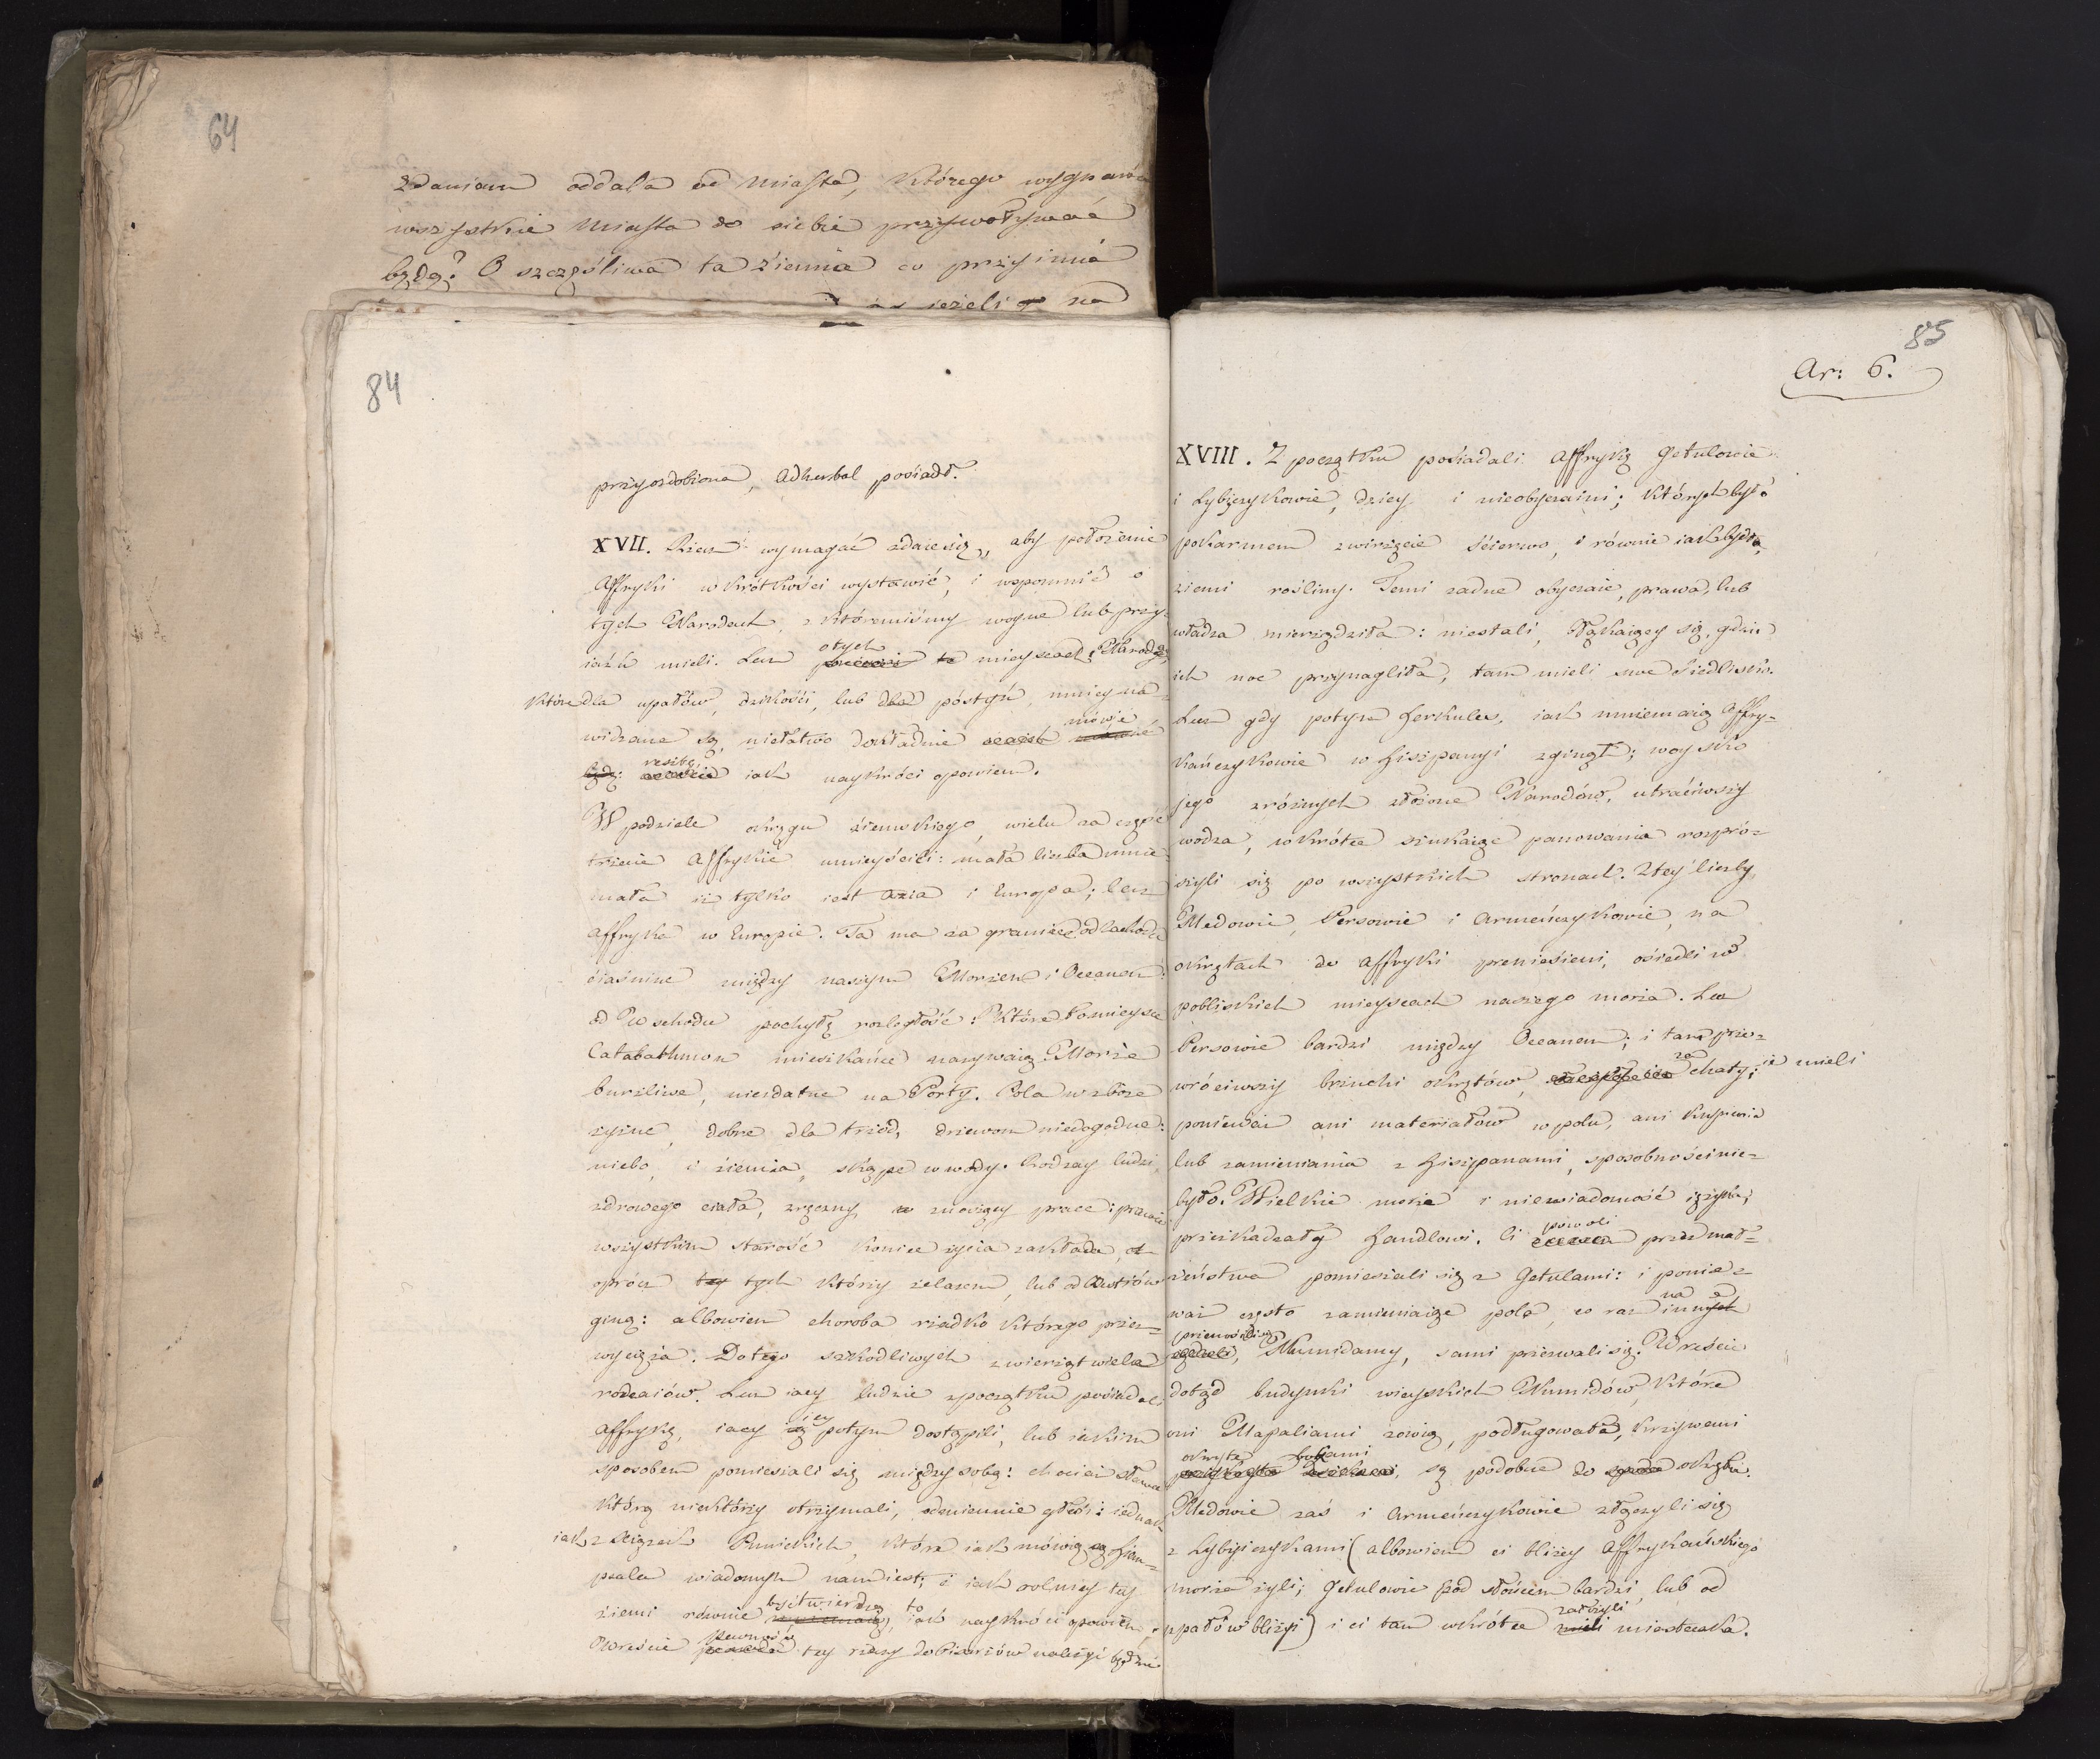 64
zdaniem oddala od Miasta, którego wygnańca
wszystkie Miasta do siebie przywoływać
będą? O szczęśliwa ta ziemia co przyimie
ieżeli na
84
przyozdobiona, Adherbal posiadł.
XVII. Rzecz wymagać zdaie się, aby położenie
Affryki w krótkości wystawić, i wspomnić o
tych Narodach, z któremiśmy woynę lub przy-
iaźń mieli. Lecz o tych mieyscach i Narodach
które dla upałów, dzikości, lub dla póstyń, mniey na-
widzane są, niełatwo dokładnie mówić
resztę iak naykróci opowiem.
W podziele okręgu ziemskiego, wielu za część
trzecią Affrykę umieścili: mała liczba mnie-
mała iż tylko iest Azia i Europa; lecz
Affryka w Europie. Ta ma za granicę od zachodu
ciaśninę między naszym Morzem i Oceanem:
od Wschodu pochyłą rozległość: Które to mieysce
Catabathmon mieszkańce nazywaią. Morze
burzliwe, niezdatne na Porty. Pola w zboże
żyzne, dobre dla trzód, drzewom niedogodne:
niebo i ziemia, skąpe w wody. Rodzay ludzi,
zdrowego ciała, zręczny, znoszący prace: prawie
wszystkim starość koniec życia zakłada,
oprócz tych którzy żelazem, lub od zwierzów
giną: albowiem choroba rzadko którego prze-
wycięża. Do tego szkodliwych zwierząt wiele
rodzaiów. Lecz iacy ludzie z początku posiadali
Affrykę, iacy iey potym dostąpili, lub iakim
sposobem pomieszali się między sobą: chociaż sława
którą niektórzy otrzymali, odmiennie głosi: iednak
iak z Xiążek Punickich, które iak mówią Hiem-
psala wiadomym nam iest, i iak rolnicy tey
ziemi równie być twierdzą, to iak naykróci opowiem.
Wreście pewność tey rzeczy do Pisarzów należyć będzie
85
Ar: 6.
XVIII. Z początku posiadali Affrykę Getulowie
i Lybiczykowie, dzicy i nieobyczaini; których było
pokarmem zwirzęcie ścierwo, i równie iak bydła,
ziemi rośliny. Temi żadne obyczaie, prawa, lub
władza nierządziła: niestali, błąkaiący się, gdzie
ich noc przynagliła, tam mieli swe siedlisko.
Lecz gdy potym Herkules, iak mniemaią Affry-
kańczykowie w Hiszpanyi zginął; woysko
jego z różnych złożone Narodów, utraciwszy
wodza, wkrótce szukaiąc panowania rozpró-
szyli się po wszystkich stronach. Z tey liczby
Medowie, Persowie i Armeńczykowie, na
okrętach do Affryki przeniesieni, osiedli w
pobliskich mieyscach naszego morza. Lecz
Persowie bardzi między Oceanem; i tam prze-
wróciwszy brzuchi okrętów, za chaty ie mieli;
ponieważ ani materiałów w polu, ani kupienia
lub zamieniania z Hiszpanami, sposobności nie-
było. Wielkie morze i niewiadomość ięzyka,
przeszkadzały Handlowi. Ci powoli przez mał-
żeństwa pomieszali się z Getulami: i ponie-
waż często zamieniaiąc pola, co raz na inne
przenosili się, Numidamy, sami przezwali się. Wreście
dotąd budynki wieyskich Numidów, które
oni Mapaliami zowią, podługowate, krzywemi
okryte bokami, są podobne do okrętu.
Medowie zaś i Armeńczykowie złączyli się
z Lybiyczykami (albowiem ci bliżey Affrykańskiego
morza żyli; Getulowie pod słońcem bardzi, lub od
upałów bliżyi) i ci tam wkrótce założyli miasteczka.